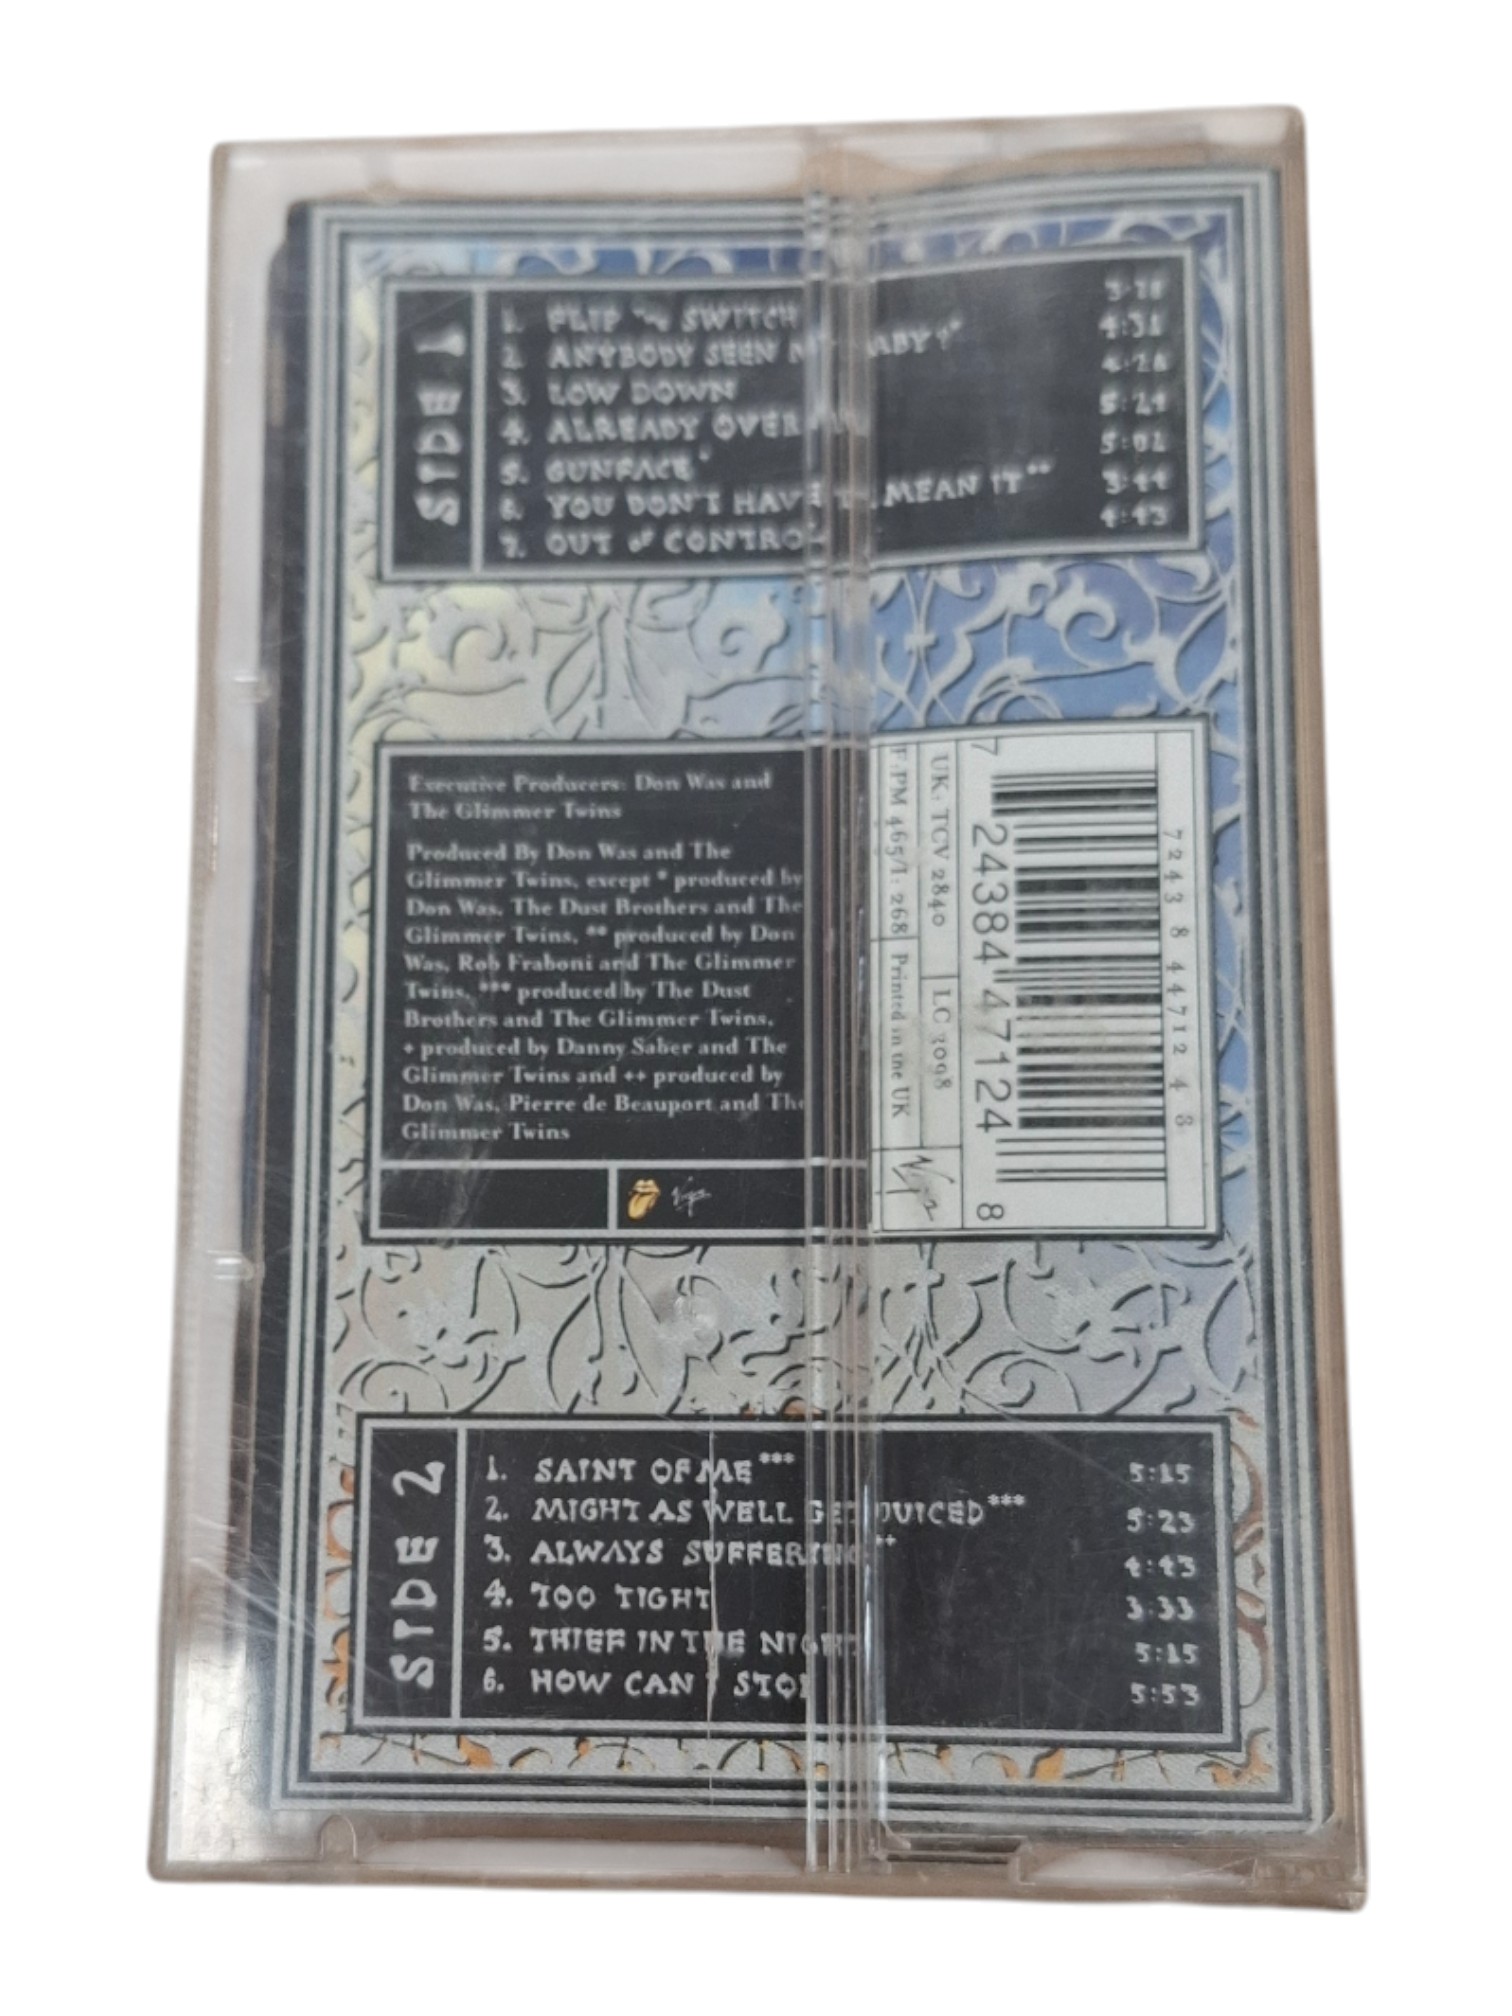 SIDE 1
1. FLIP THE SWITCH 3:28
2. ANYBODY SEEN MY BABY?* 4:31
3. LOW DOWN 4:26
4. ALREADY OVER 5:24
5. GUNFACE+ 5:02
6. YOU DON'T HAVE TO MEAN IT** 3:44
7. OUT OF CONTROL 4:43
Executive Producers: Don Was and
The Glimmer Twins
Produced By Don Was and The
Glimmer Twins, except * produced by
Don Was, The Dust Brothers and The
Glimmer Twins, ** produced by Don
Was, Rob Fraboni and The Glimmer
Twins, *** produced by The Dust
Brothers and The Glimmer Twins,
+ produced by Danny Saber and The
Glimmer Twins and ++ produced by
Don Was, Pierre de Beauport and The
Glimmer Twins
Virgin
F: PM 465/I: 268 Printed in the UK
UK: TCV 2840 LC 3098
Virgin
7 24384 47124 8
7243 8 44712 4 8
SIDE 2
1. SAINT OF ME*** 5:15
2. MIGHT AS WELL GET JUICED*** 5:23
3. ALWAYS SUFFERING++ 4:43
4. TOO TIGHT 3:33
5. THIEF IN THE NIGHT 5:15
6. HOW CAN I STOP 5:53